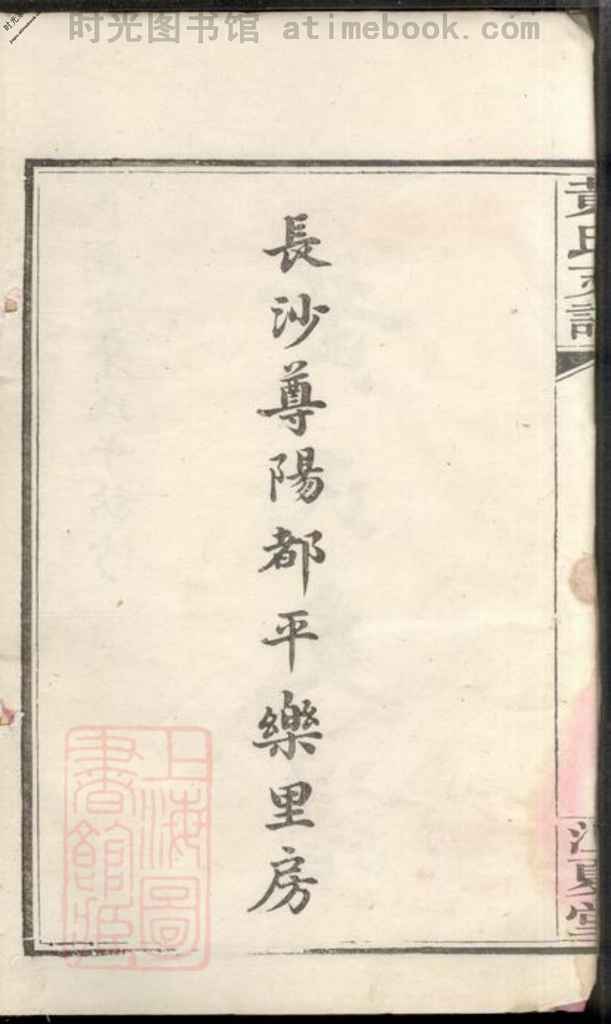 时光图书馆 atimebook.com
黃氏支譜
江夏堂
長沙尊陽都平樂里房
上海圖
書館藏